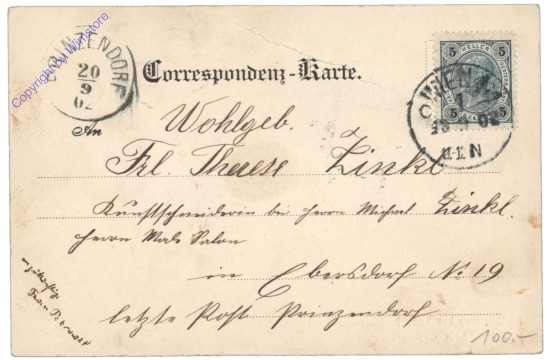 Copyright by Wimstore
PRINZENDORF
20
9
02
Correspondenz-Karte.
5 HELLER 5
WIEN
5 5
An
Wohlgeb.
Frl. Therese Zinkl
Kunstschneiderin bei Herrn Michael Zinkl.
Herren Mode Salon
in Ebersdorf No. 19
letzte Post Prinzendorf
100.-